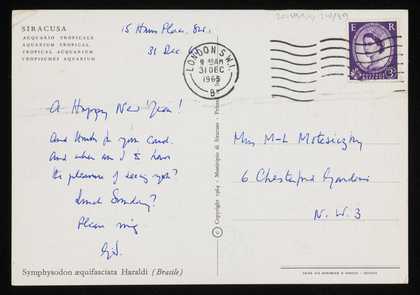 SIRACUSA
ACQUARIO TROPICALE
AQUARIUM TROPICAL
TROPICAL AQUARIUM
TROPISCHES AQUARIUM
15 Hans Place, S.W.1.
31 Dec
LONDON S.W.1.
9 15 AM
31 DEC
1965
B
E R
POSTAGE
REVENUE
3D
A Happy New Year!
And thanks for your card.
And when am I to have
the pleasure of seeing you?
Lunch Sunday?
Please ring
Miss M-L Motesiczky
6 Chesterford Gardens
N.W.3
© Copyright 1964 - Municipio di Siracusa -
Symphysodon æquifasciata Haraldi (Brasile)